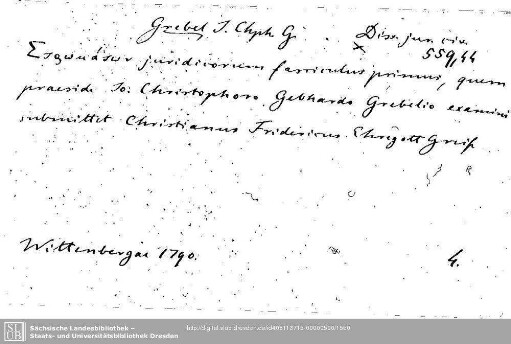 Grebel J. Chph. G. Diss. jur. civ.
559,44
juridicorum fasciculus primus, quem
praeside Jo. Christophoro Gebhardo Grebelio examini
submittet Christianus Fridericus Ehregott Greif
Wittenbergae 1790.
4.
Sächsische Landesbibliothek –
Staats- und Universitätsbibliothek Dresden